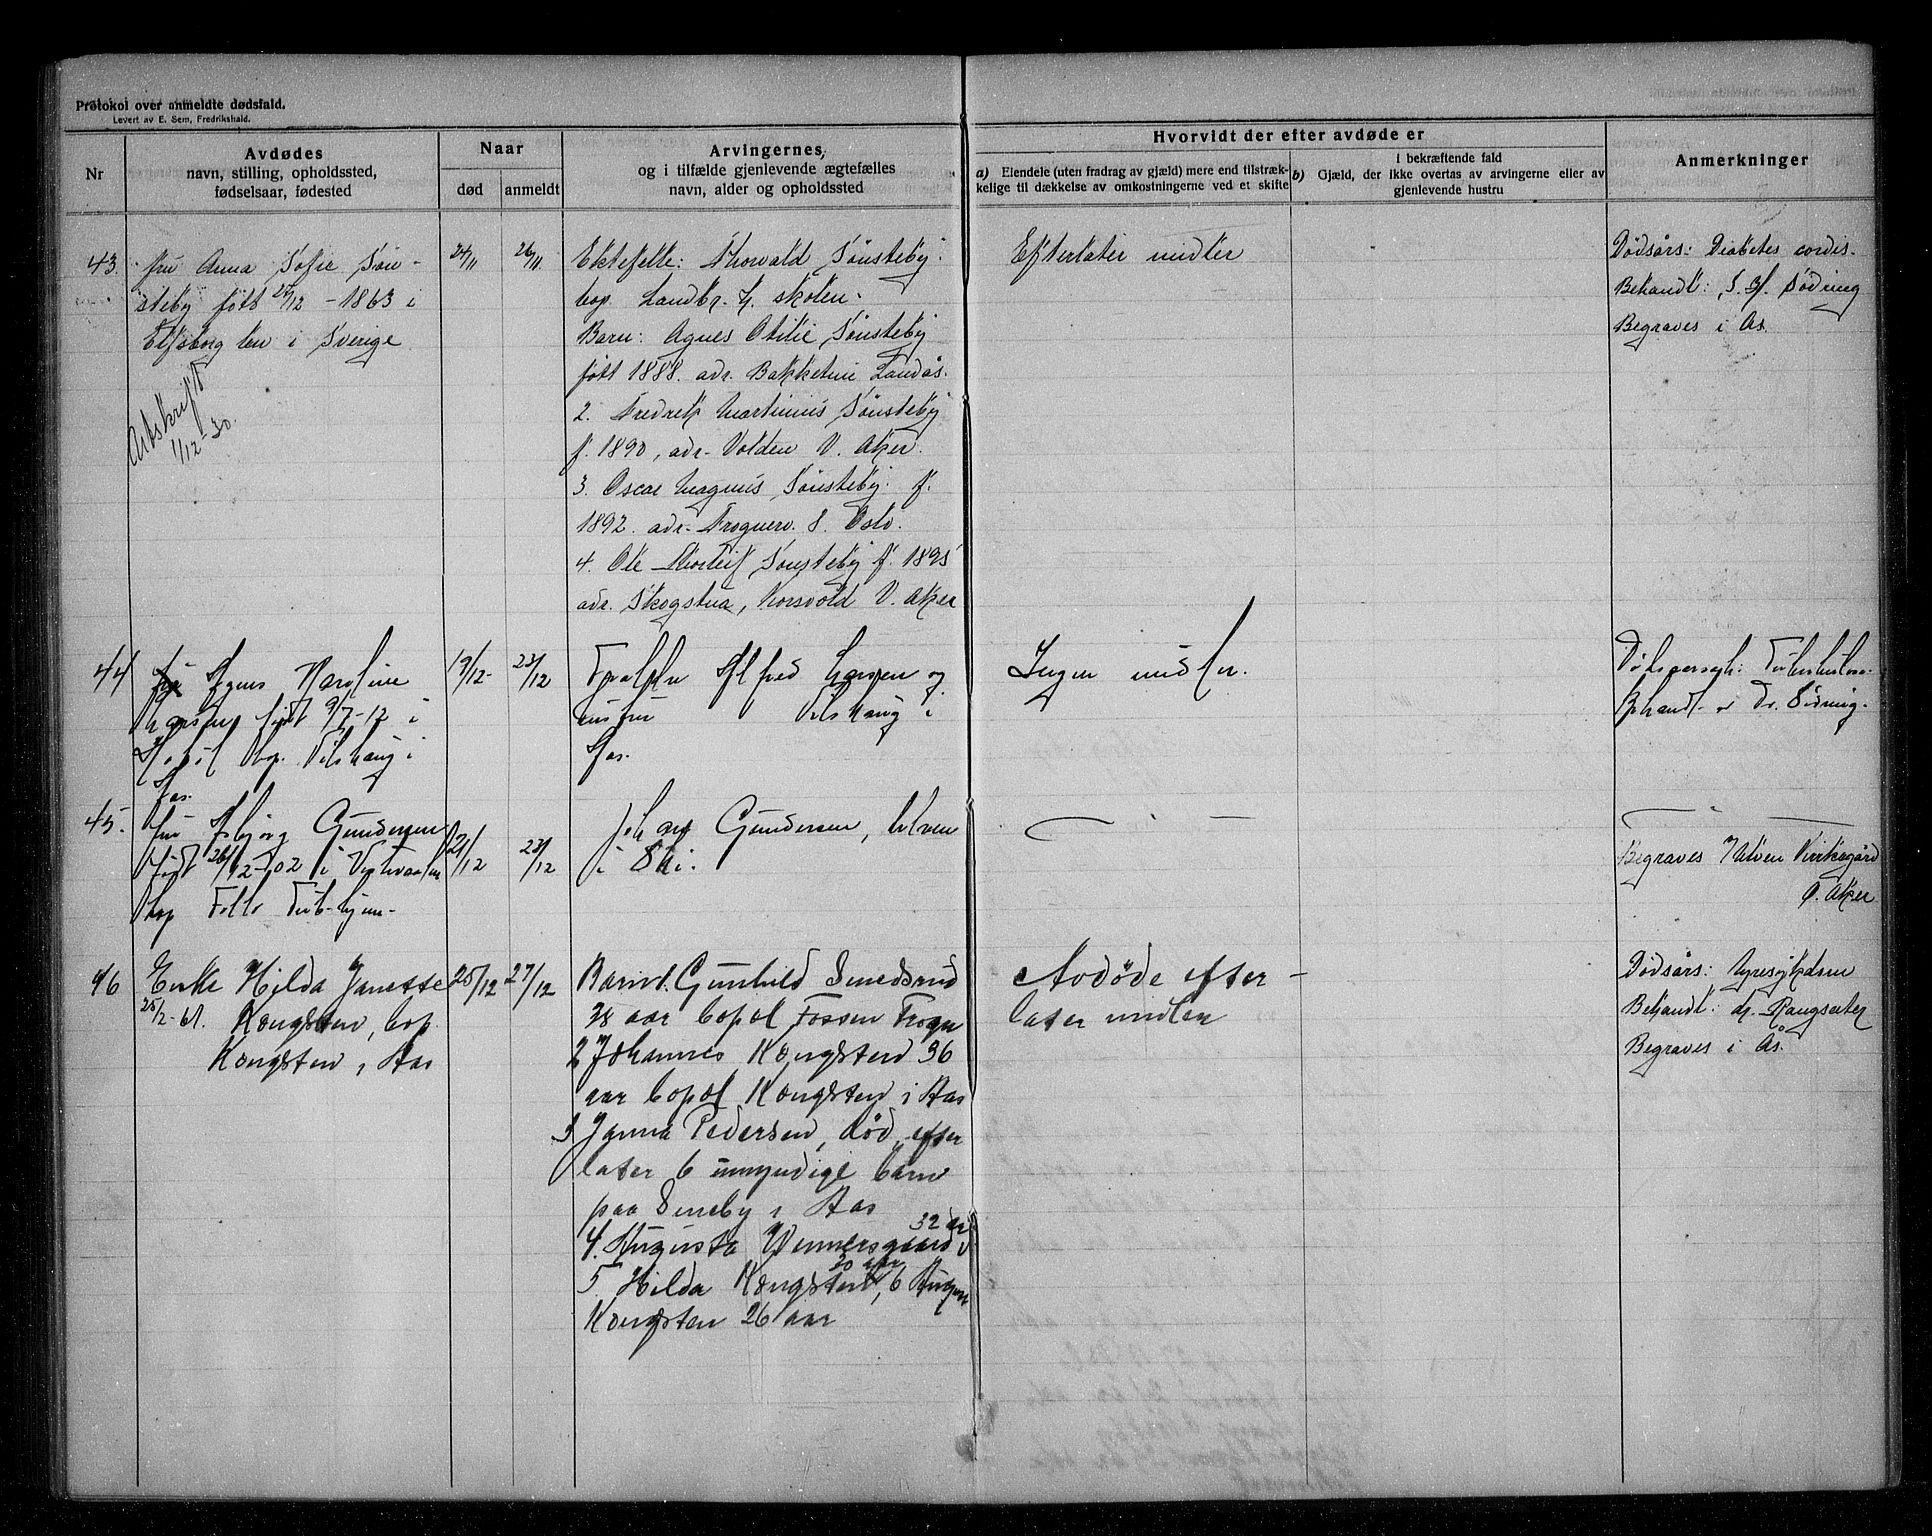 Protokol over anmeldte dødsfald.
Levert av E. Sem, Fredrikshald.
Nr
Avdødes
navn, stilling, opholdssted,
fødselsaar, fødested
Naar
død
anmeldt
Arvingernes,
og i tilfælde gjenlevende ægtefælles
navn, alder og opholdssted
Hvorvidt der efter avdøde er
a) Eiendele (uten fradrag av gjæld) mere end tilstræk-
kelige til dækkelse av omkostningerne ved et skifte
i bekræftende fald
b) Gjæld, der ikke overtas av arvingerne eller av
gjenlevende hustru
Anmerkninger
43.
fru Anna Sofie Søn-
steby født 24/12 - 1863 i
Elfsborg len i Sverige
Avskrift
1/12-30.
24/11
26/11
Ektefelle: Thorvald Sønsteby.
bop. Landbr. H. skolen.
Barn: Agnes Otilie Sønsteby
født 1888. adr. Bakketun Landås.
2. Fredrik Martinius Sønsteby
f. 1890, adr. Volden V. Aker.
3. Oscar Magnus Sønsteby. f.
1892. adr. Frognerv. 8. Oslo.
4. Ole Thorleif Sønsteby f. 1895
adr. Skogstua, Korsvold V. Aker
Efterlater midler
Dødsårs: Diabetes cordis.
Behandl: S. H. Södring
Begraves i Ås.
44
Agnes Karoline
Larsen født 9/7-12 i
bop. i
Aas.
19/12-
23/12
Alfred Larsen og
hustru i
Aas.
Ingen midler.
Behandl. av Dr. Södring.
45.
fru Asbjørg Gundersen
født 26/12-02 i
bop Follo Tub-hjem-
21/12
23/12
Johan Gundersen,
i Ski.
— " —
— " —
Begraves Ulven Kirkegård
Ø. Aker
46
Enke Hilda Janette
25/2-61. Kongsten, bop.
Kongsten i Aas
25/12
27/12
Barn 1. Gunhild Smedsrud
38 aar bopæl Fossen Frogn
2 Johannes Kongsten 36
aar bopæl Kongsten i Aas
3 Janna Pedersen, død, efter
later 6 umyndige barn
paa Seneby i Aas
32 aar
4. Augusta Wennersgaard
30 aar
5. Hilda Kongsten, 6 August
Kongsten 26 aar
Avdøde efter-
later midler
Dødsårs: Nyresykdom
Behandl: dr. Rangsæter
Begraves i Ås.